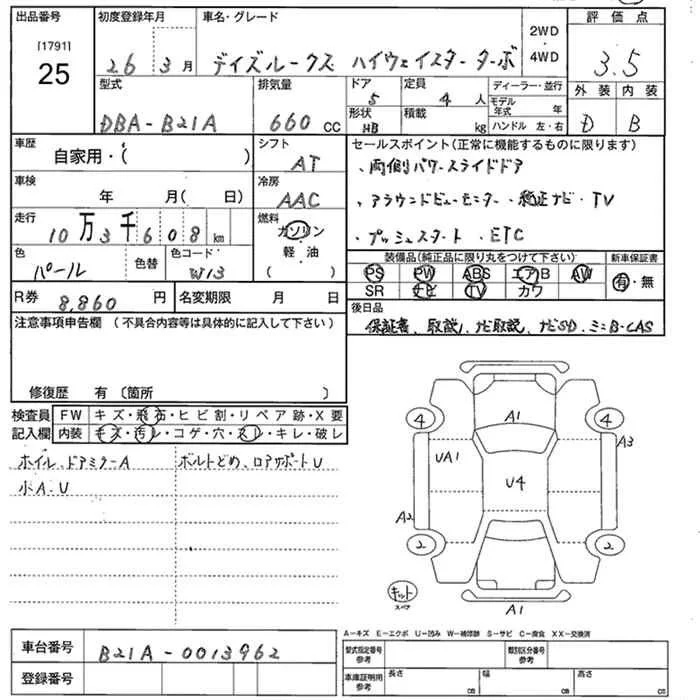 出品番号 初度登録年月 車名・グレード 2WD 評価点
[1791] 4WD
25 26 3月 デイズルークス ハイウェイスター ターボ 3.5
型式 排気量 ドア 定員 ディーラー・並行 外装 内装
5 4人 モデル年式 年
DBA-B21A 660cc 形状 積載 ハンドル 左・右 D B
HB kg
車歴 シフト セールスポイント(正常に機能するものに限ります)
自家用・( ) AT 、両側パワースライドドア
車検 冷房
年 月( 日) AAC 、アラウンドビューモニター 、純正ナビ・TV
走行 燃料
10万3千608km ガソリン 、プッシュスタート 、ETC
色 色替 色コード 軽・油 装備品(純正品に限り丸をつけて下さい) 新車保証書
パール W13 ( ) PS PW ABS エアB AW 有・無
SR ナビ TV カワ
R券 8,860円 名変期限 月 日 後日品
注意事項申告欄(不具合内容等は具体的に記入して下さい) 保証書、取説、ナビ取説、ナビSD、ミニB-CAS
修復歴 有(箇所 )
検査員 FW キズ・飛石・ヒビ割・リペア跡・X要
記入欄 内装 キズ・汚レ・コゲ・穴・スレ・キレ・破レ
ホイル、ドアミラーA ボルトどめ、ロアサポートU
小A、U
A1
4 4
A3
UA1
U4
A2
2 2
キット
スペア
A1
A-キズ E-エクボ U-凹み W-補修跡 S-サビ C-腐食 XX-交換済
車台番号 B21A-0013962 型式指定番号 参考 類別区分番号 参考
登録番号 車庫証明用 参考 長さ cm 幅 cm 高さ cm